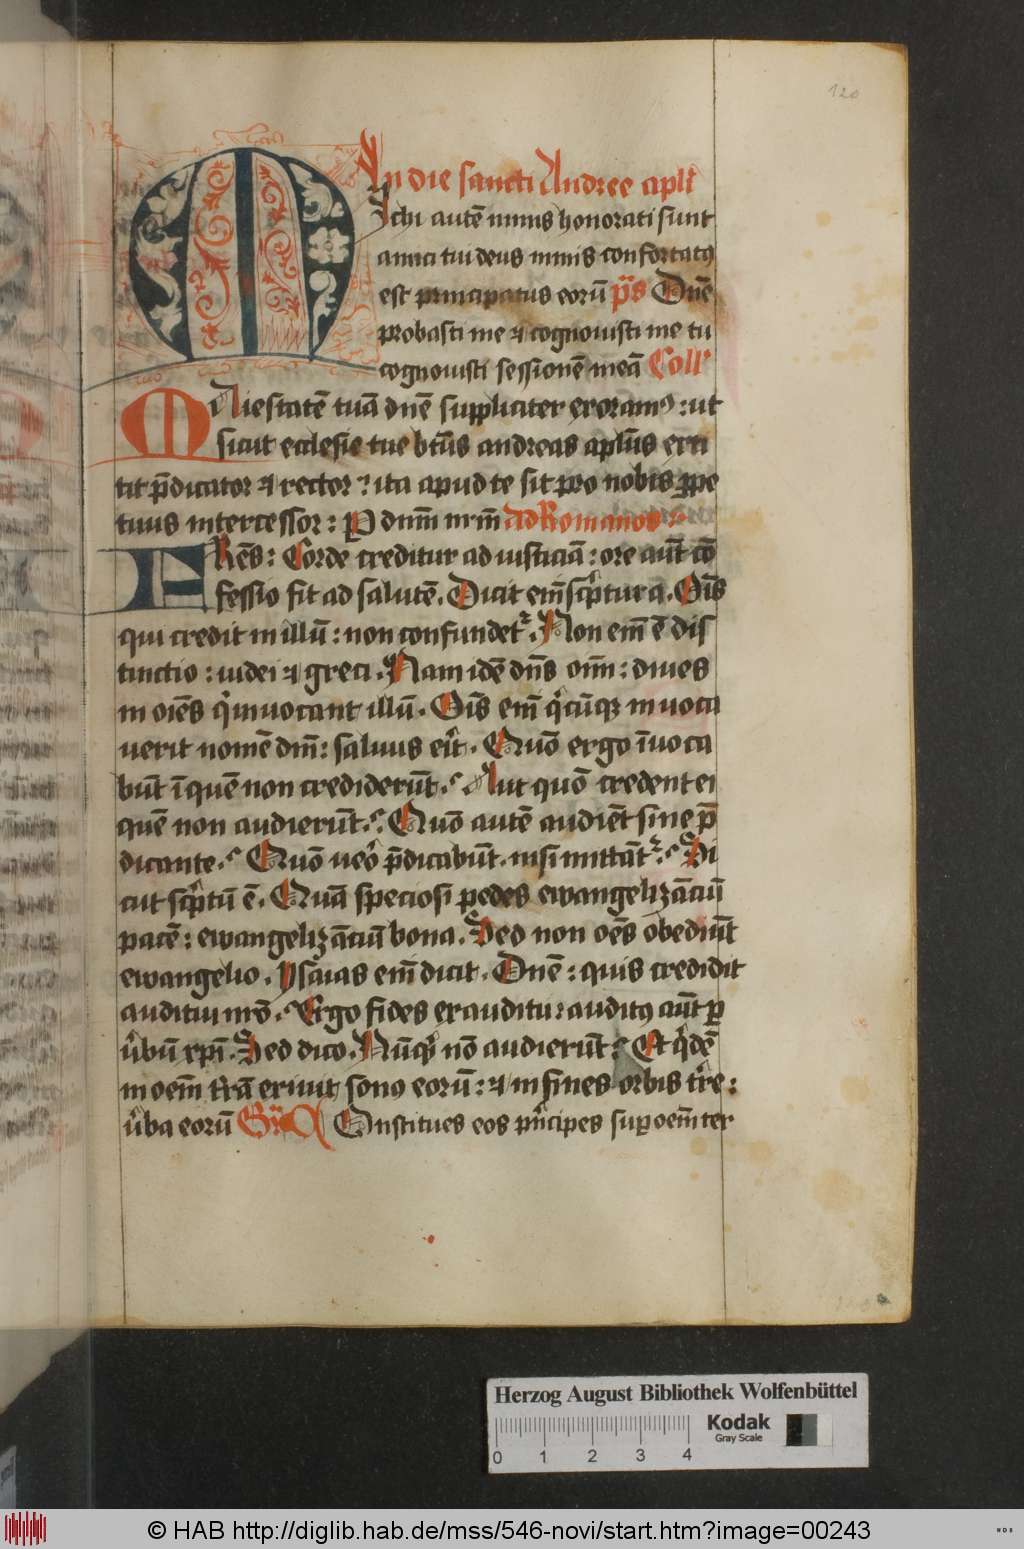 120
In die sancti Andree apli
Michi autē nimis honorati sunt
amici tui deus nimis confortatꝰ
est principatus eorū p̄s Dn̄e
probasti me ⁊ cognouisti me tu
cognouisti sessionē meā Coll'
MAiestatē tuā dn̄e suppliciter exoramꝰ : ut
sicut ecclesie tue bt̄us andreas apl̄us exti
tit p̄dicator ⁊ rector : ita apud te sit pro nobis ꝑpe
tuus intercessor : P dnm̄ nrm̄ Ad Romanos :
FRēs : Corde creditur ad iusticiā : ore aut̄ cō
fessio fit ad salutē . Dicit em̄ scͥptura . Oīs
qui credit in illū : non confundet᷑ . Non em̄ ē dis
tinctio : iudei ⁊ greci . Nam idē dn̄s oīm : diues
in oīes qͥ inuocant illū . Oīs em̄ qͥcūqꝫ inuoca
uerit nomē dnī : saluus eͥt . Quō ergo īuoca
būt ī quē non crediderūt . Aut quō credent ei
quē non audierūt . Quō autē audiēt sine p̄
dicante . Quō ueͦo p̄dicabūt . nisi mittāt᷑ . Si
cut scͥptū ē . Quā speciosi pedes ewangelizāciū
pacē : ewangelizāciū bona . Sed non oēs obediūt
ewangelio . Ysaias em̄ dicit . Dn̄e : quis credidit
auditui nrō . Ergo fides ex auditu : auditꝰ aut̄ ꝑ
uͥbū xpī . Sed dico . Nūqͥd nō audierūt : Et qͥdē
in oem̄ trā̄ exiuit sonꝰ eorū : ⁊ in fines orbis tͥre :
uͥba eorū Gr̄ Constitues eos pͥncipes suꝑ oem̄ ter
Herzog August Bibliothek Wolfenbüttel
Kodak
Gray Scale
0 1 2 3 4
© HAB http://diglib.hab.de/mss/546-novi/start.htm?image=00243